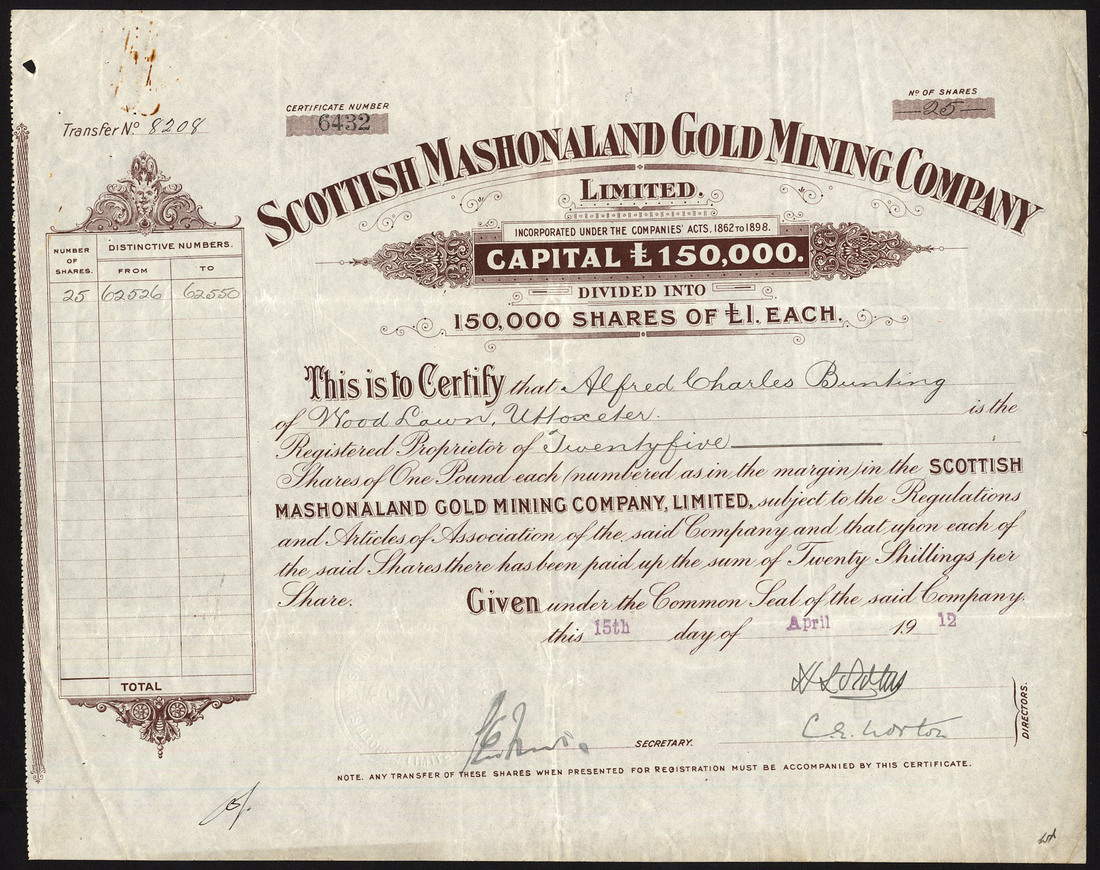 Transfer No. 8208
CERTIFICATE NUMBER
6432
No. OF SHARES
25
SCOTTISH MASHONALAND GOLD MINING COMPANY
LIMITED.
INCORPORATED UNDER THE COMPANIES' ACTS, 1862 TO 1898.
CAPITAL £150,000.
DIVIDED INTO
150,000 SHARES OF £1. EACH.
NUMBER OF SHARES.
DISTINCTIVE NUMBERS.
FROM TO
25 62526 62550
TOTAL
This is to Certify that Alfred Charles Bunting
of Wood Lawn, Uttoxeter. is the
Registered Proprietor of Twentyfive
Shares of One Pound each (numbered as in the margin) in the SCOTTISH
MASHONALAND GOLD MINING COMPANY, LIMITED, subject to the Regulations
and Articles of Association of the said Company and that upon each of
the said Shares there has been paid up the sum of Twenty Shillings per
Share. Given under the Common Seal of the said Company
this 15th day of April 1912
C. E. Norton
DIRECTORS.
SECRETARY.
NOTE. ANY TRANSFER OF THESE SHARES WHEN PRESENTED FOR REGISTRATION MUST BE ACCOMPANIED BY THIS CERTIFICATE.